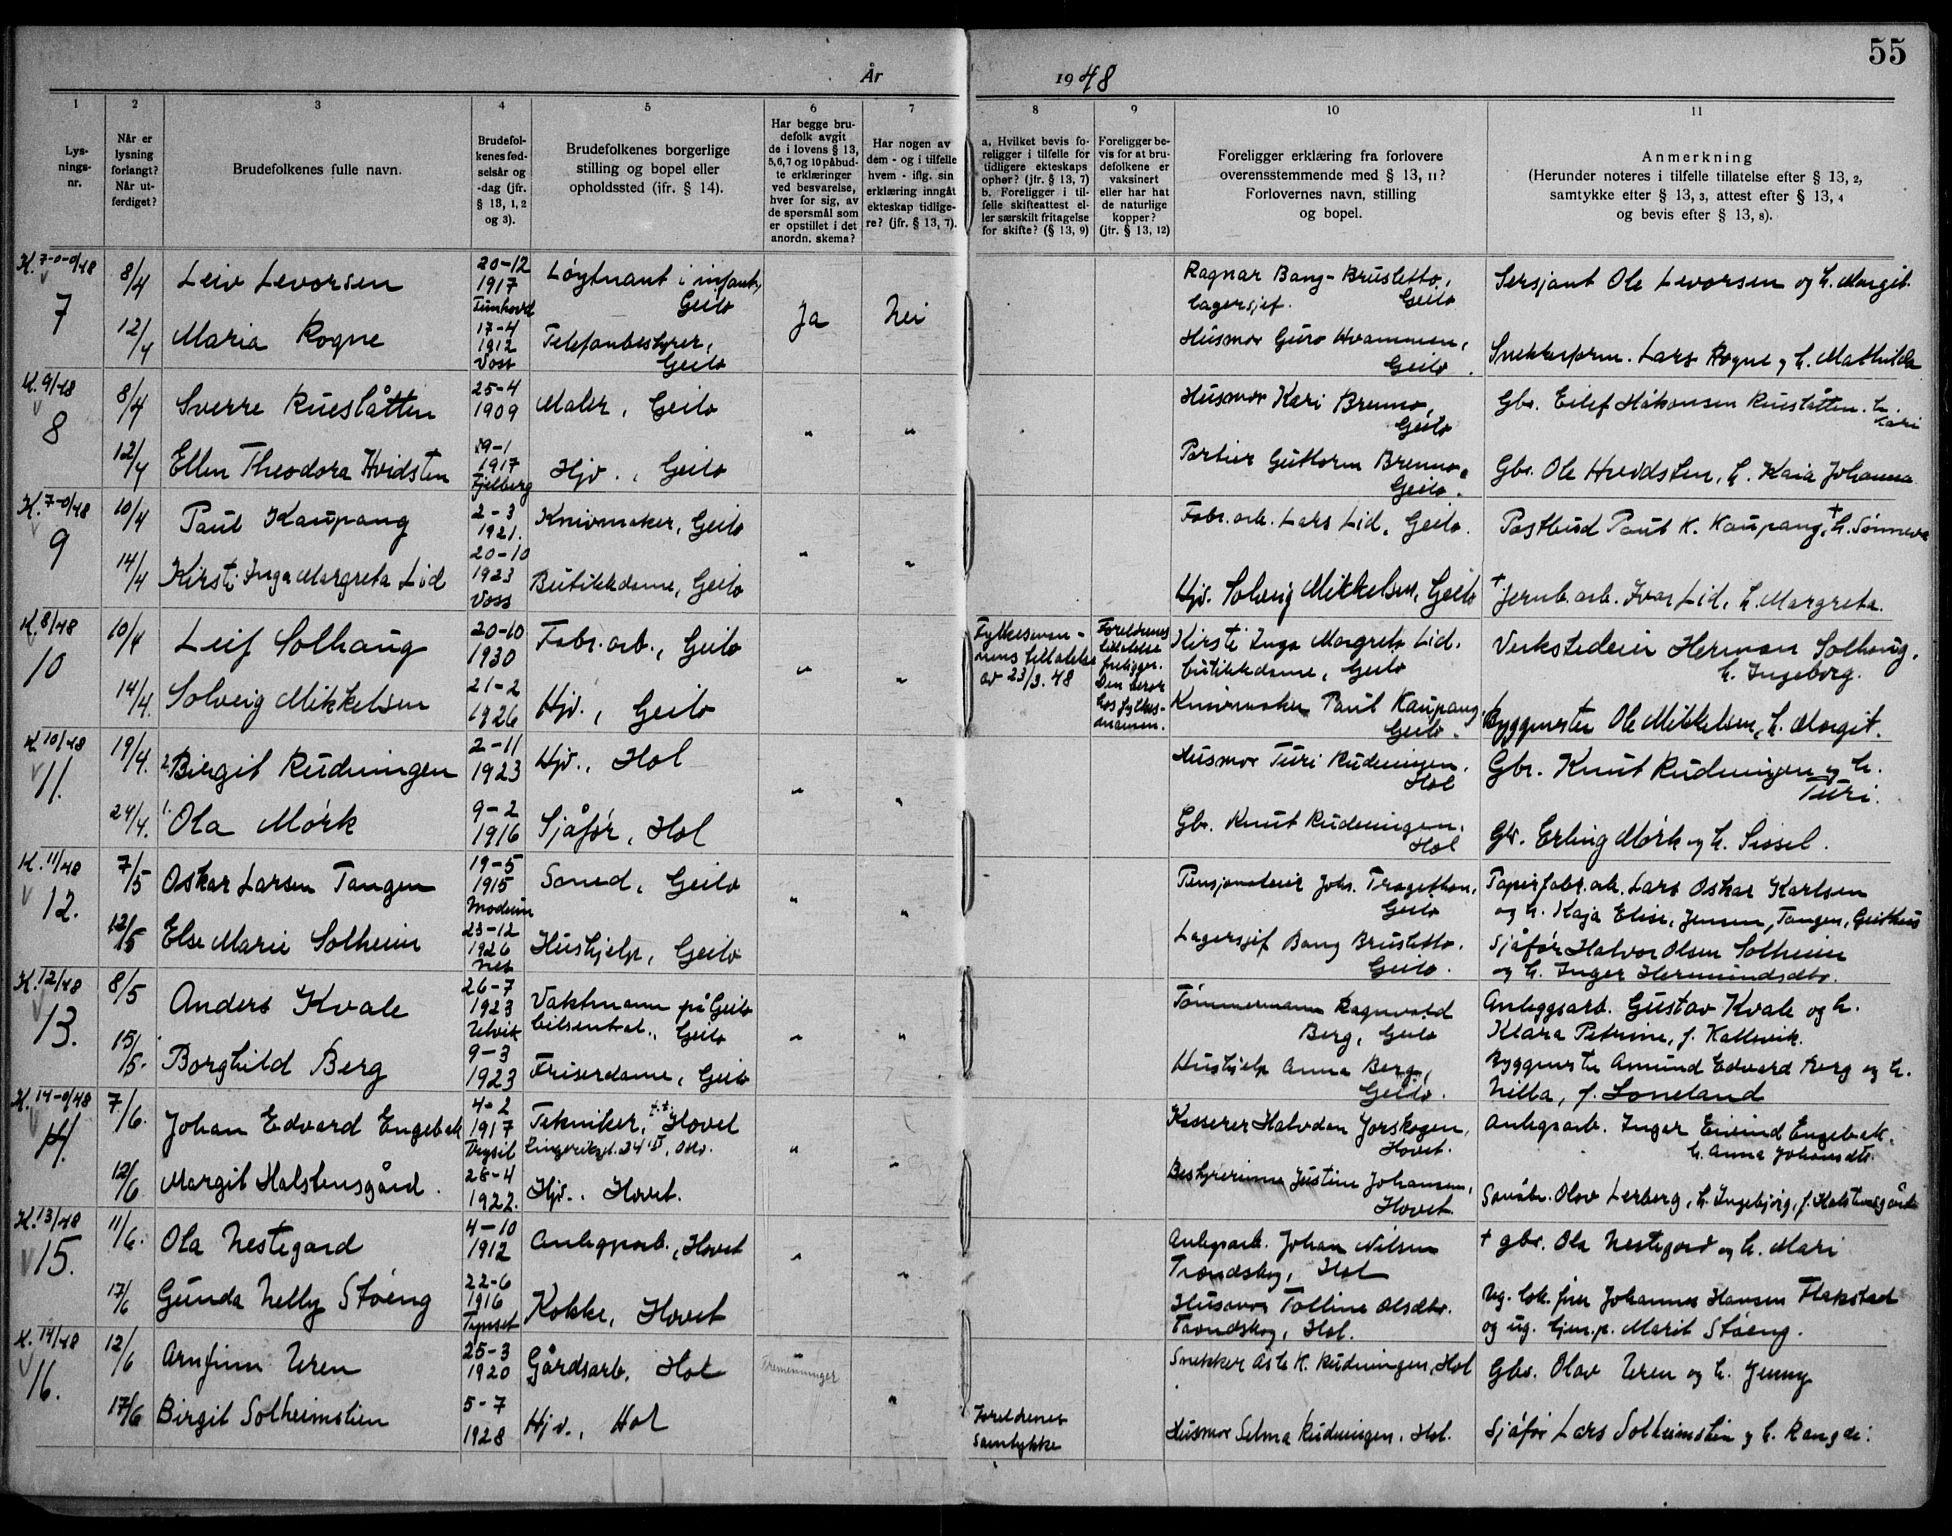 55
År 1948
1
2
3
4
5
6
7
8
9
10
11
Lys-
nings-
nr.
Når er
lysning
forlangt?
Når ut-
ferdiget?
Brudefolkenes fulle navn.
Brudefol-
kenes fød-
selsår og
-dag (jfr.
§ 13, 1, 2
og 3).
Brudefolkenes borgerlige
stilling og bopel eller
opholdssted (jfr. § 14).
Har begge bru-
defolk avgit
de i lovens § 13,
5,6,7 og 10 påbud-
te erklæringer
ved besvarelse,
hver for sig, av
de spørsmål som
er opstillet i det
anordn. skema?
Har nogen av
dem - og i tilfelle
hvem - iflg. sin
erklæring inngåt
ekteskap tidlige-
re? (jfr. § 13, 7).
a. Hvilket bevis fo-
religger i tilfelle for
tidligere ekteskaps
ophør? (jfr. § 13, 7)
b. Foreligger i til-
felle skifteattest el-
ler særskilt fritagelse
for skifte? (§ 13, 9)
Foreligger be-
vis for at bru-
defolkene er
vaksinert
eller har hat
de naturlige
kopper?
(jfr. § 13, 12)
Foreligger erklæring fra forlovere
overensstemmende med § 13, 11?
Forlovernes navn, stilling
og bopel.
Anmerkning
(Herunder noteres i tilfelle tillatelse efter § 13, 2,
samtykke efter § 13, 3, attest efter § 13, 4
og bevis efter § 13, 8).
K. 7-0-0/48
7
8/4
Leiv Levorsen
20-12
1917
Tunhovd
Løytnant i infant.,
Geilo
Ja
Nei
Ragnar Bang-Brusletto,
lagersjef. Geilo
Sersjant Ole Levorsen og h. Margit
12/4
Maria Rogne
17-4
1912
Voss
Telefonbestyrer,
Geilo
Husmor Guro Hvammen,
Geilo
Snekkerform. Lars Rogne og h. Mathilda
K. 9/48
8
8/4
Sverre Rueslåtten
25-4
1909
Maler, Geilo
"
"
Husmor Kari Brenno,
Geilo
Gbr. Eilef Håkonsen Rueslåtten. h.
Kari
12/4
Ellen Theodora Hvidsten
19-1
1917
Fjelberg
Hjv., Geilo
Portier Guttorm Brenno,
Geilo.
Gbr. Ole Hvidsten, h. Kaia Johanna
K. 7-0/48
9
10/4
Paul Kaupang
2-3
1921.
Knivmaker, Geilo
"
"
Fabr.arb. Lars Lid, Geilo.
Postbud Paul K. Kaupang, + h. Sønneva
14/4
Kirsti Inga Margreta Lid
20-10
1923
Voss
Butikkdame, Geilo
Hjv. Solveig Mikkelsen, Geilo
+ Jernb.arb. Ivar Lid, h. Margreta.
K. 8/48
10
10/4
Leif Solhaug
20-10
1930
Fabr.arb., Geilo
"
"
Fylkesman-
nens tillatelse
av 23/3.48
Foreldrenes
tillatelse
foreligger.
Den beror
hos fylkes-
mannen.
Kirsti Inga Margreta Lid.
butikkdame, Geilo
Verkstedeier Herman Solhaug,
h. Ingeborg.
14/4.
Solveig Mikkelsen
21-2
1926
Hjv., Geilo
Knivmaker Paul Kaupang,
Geilo.
Byggmester Ole Mikkelsen, h. Margit.
K. 10/48
11.
19/4.
2. Birgit Rudningen
2-11
1923
Hjv., Hol
"
"
Husmor Turi Rudningen,
Hol
Gbr. Knut Rudningen og h.
Turi.
24/4.
1. Ola Mørk
9-2
1916
Sjåfør, Hol
Gbr. Knut Rudningen,
Hol
Gbr. Erling Mørk og h. Sissel.
K. 11/48
12.
7/5
Oskar Larsen Tangen
19-5
1915
Modum
Smed, Geilo
"
"
Pensjonateier Johs. Tragethon,
Geilo
Papirfabr.arb. Lars Oskar Karlsen
og h. Kaja Elise, Jensen, Tangen, Geithus
12/5
Else Marie Solheim
23-12
1926
Nes
Hushjelp, Geilo
Lagersjef Bang Brusletto.
Geilo.
Sjåfør Halvor Olsen Solheim
og h. Inger Hermundsdtr.
K. 12/48
13.
8/5
Anders Kvale
26-7
1923
Ulvik
Vaktmann på Geilo
bilsentral., Geilo
"
"
Tømmermann Ragnvald
Berg, Geilo
Anleggsarb. Gustav Kvale og h.
Klara Petrine, f. Kallevik.
15/5.
Borghild Berg
9-3
1923
Friserdame, Geilo
Hushjelp Anna Berg,
Geilo.
Byggmester Amund Edvard Berg og h.
Nilla, f. Loneland
K. 14-0/48
14.
7/6.
Johan Edvard Engebak
4-2
1917
Trysil
Tekniker, t.t. Hovet
"
"
Kasserer Halvdan Jorskogen,
Hovet.
Anlegsarb. Ingar Eivind Engebak,
h. Anna Johansdtr.
12/6
Margit Halstensgård.
28-4
1922.
Hjv., Hovet.
Bestyrerinne Justine Johansen,
Hovet
Småbr. Olav Lerberg, h. Ingebjørg, f. Halstensgård
K. 13/48
15.
11/6.
Ola Nestegard
4-10
1912
Anleggsarb., Hovet
"
"
Anlegsarb. Johan Nilsen
Trondskog, Hol
+ gbr. Ola Nestegard og h. Mari
17/6
Gunda Nelly Støeng
22-6
1916
Tynset
Kokke, Hovet
Husmor Tolline Olsdtr.
Trondskog, Hol.
Ug. lok.fører Johannes Hansen Flakstad
og ug. tjen.p. Marit Støeng.
K. 14/48
16.
12/6
Arnfinn Uren
25-3
1920
Gårdsarb. Hol
"
Tremenninger
"
Snekker Asle K. Rudningen, Hol
Gbr. Olav Uren og h. Jenny
17/6
Birgit Solheimslien
5-7
1928
Hjv., Hol
Foreldrenes
samtykke
Husmor Selma Rudningen, Hol.
Sjåfør Lars Solheimslien og h. Rangdi.